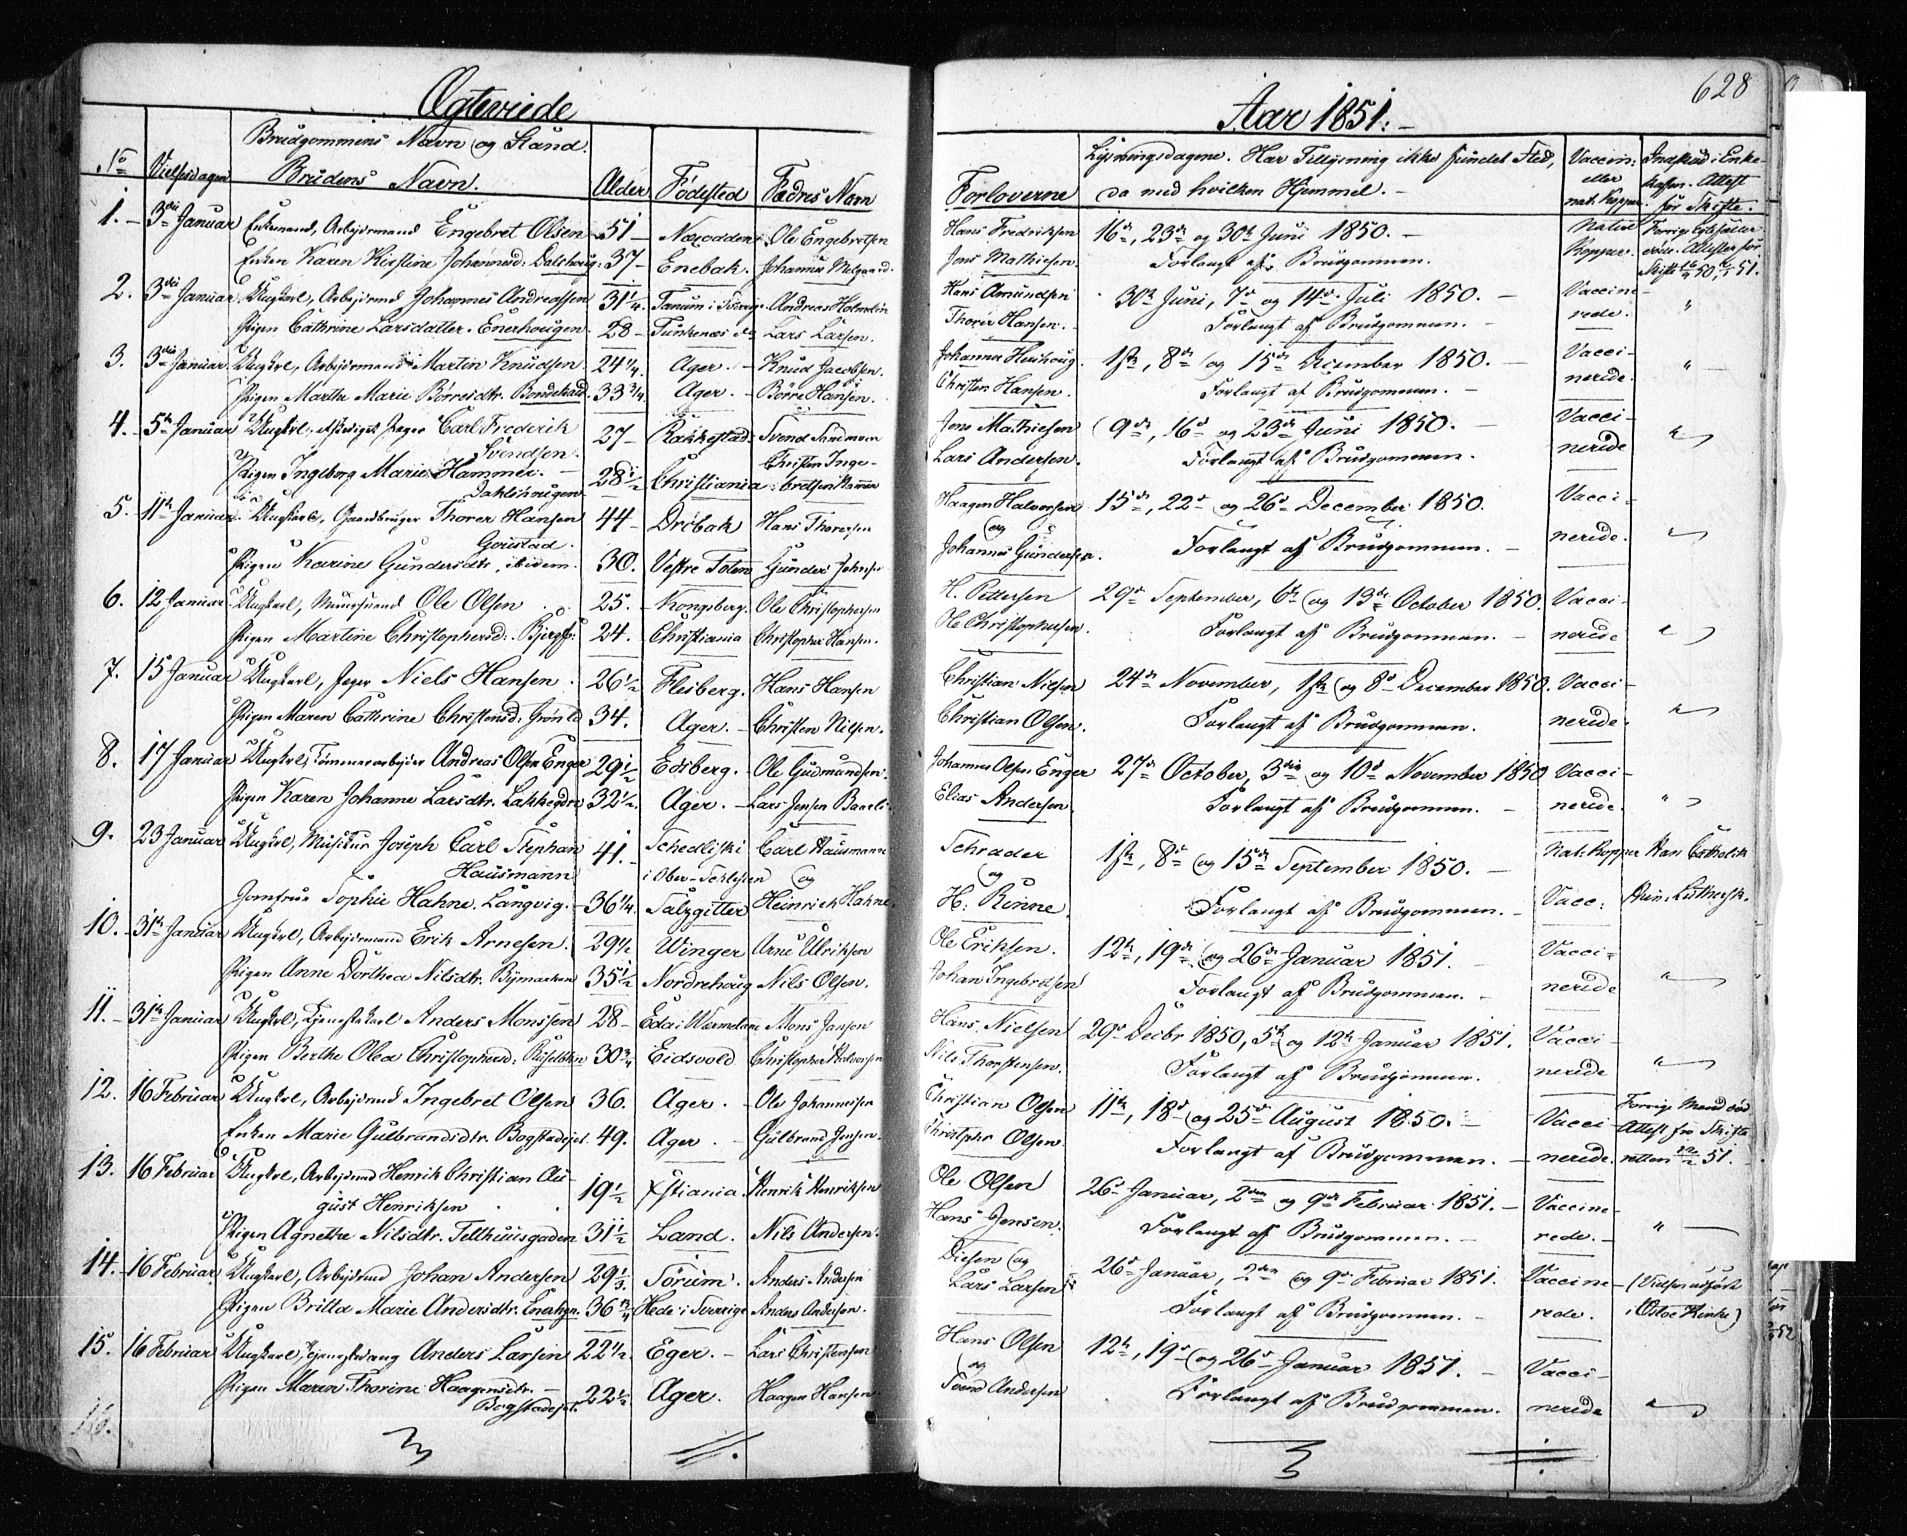 Ægteviede
Aar 1851.
628
No
Vielsesdagen
Brudgommens Navn og Stand.
Brudens Navn.
Alder
Fødested
Fædres Navn
Forloverne
Lysningsdagene. Har Tillysning ikke fundet Sted,
da med hvilken Hjemmel.
Vaccin:
eller
nat. Kopper.
Indskud i Enke-
kassen. Attest
for Skifte.
1. 3die Januar Enkemand, Arbejdsmand Engebret Olsen 51 Næsodden Ole Engebretsen Hans Fredriksen 16de, 23de og 30te Juni 1850. Natul
Enken Karen Kirstine Johannesd. 37 Enebak. Johannes Jens Mathiesen. Forlangt af Brudgommen. Kopper.
2. 3die Januar Ungkarl, Arbejdsmd Johannes Andreassen 31 1/4 Tanum i Sverige Andreas Holmelin Hans Amundsen 30te Juni, 7de og 14de Juli 1850. Vaccine-
Pigen Cathrine Larsdatter. Enerhougen 28 Lars Larsen. Thorer Hansen. Forlangt af Brudgommen. rede. "
3. 3die Januar Ungkarl, Arbejdsmand Martin Knudsen 24 1/4 Ager. Knud Jacobsen. Johannes 1ste, 8de og 15de December 1850. Vacci-
Pigen Marthe Marie Børresdtr. 33 3/4 Ager. Børre Hansen. Christen Hansen. Forlangt af Brudgommen. nerede. "
4. 5te Januar Ungkarl, afskediget Jæger Carl Frederik
Svendsen. 27 Rakkestad Svend Jens Mathiesen 9de, 16de og 23de Juni 1850. Vacci-
Pigen Ingeborg Marie Hammer.
Dahlshougen 28 1/2 Christiania Christen Inge-
bretsen Hammer Lars Andersen. Forlangt af Brudgommen. nerede "
5. 11te Januar Ungkarl, Gaardbruger Thorer Hansen
Goustad. 44 Drøbak Hans Thoresen Haagen Halvorsen 15de, 22de og 26de December 1850. Vacci-
og
Pigen Karine Gundersdtr, ibidem. 30. Vestre Toten Gunder Johnsen Johannes Gundersen. Forlangt af Brudgommen. nerede. "
6. 12 Januar Ungkarl, Ole Olsen 25. Kongsberg. Ole Christophersen H. Pettersen 29de September, 6te og 13de October 1850. Vacci-
Pigen Martine Christophersd. 24. Christiania Christopher Hansen. Ole Christophersen. Forlangt af Brudgommen. nerede "
7. 15 Januar Ungkarl, Jæger Niels Hansen 26 1/2 Flesberg. Hans Hansen Christian Nielsen 24de November, 1ste og 8de December 1850. Vacci-
Pigen Maren Cathrine Christensd. Grønld 34. Ager. Christen Nilsen. Christian Olsen. Forlangt af Brudgommen. nerede. "
8. 17 Januar Ungkarl, Tømmerarbejder Andreas Olsen Enger 29 1/2 Edsberg. Ole Gudmundsen. Johannes Olsen Enger 27de October, 3die og 10de November 1850 Vacci-
Pigen Karen Johanne Larsdtr. Lakkegdn 32 1/2. Ager. Lars Jensen Elias Andersen. Forlangt af Brudgommen. nerede. "
9. 23 Januar Ungkarl, Musikus Joseph Carl Stephan
Hausmann 41. Schedliski
i Ober-Schlesien Carl Hausmann
og Schrader
og 1ste, 8de og 15de September 1850. Nat. Kopper Han Catholik
Jomfrue Sophie Hahne. Langvig. 36 1/4. Salzgitter Heinrich Hahne. H. Rinne. Forlangt af Brudgommen. Vacc: Hun Luthersk.
10. 31te Januar Ungkarl, Arbejdsmand Erik Arnesen. 29 1/2 Winger Arne Ulriksen Ole Eriksen. 12te, 19de og 26de Januar 1851. Vacci-
Pigen Anne Dorthea Nilsdtr. Bymarken 35 1/2 Nordrehoug Nils Olsen. Johan Ingebretsen Forlangt af Brudgommen. nerede "
11. 31te Januar Ungkarl, Tjenestekarl Anders Monssen 28 Eda i Wermeland Mons Jansen Hans Nielsen 29de Decbr 1850, 5te og 12te Januar 1851. Vacci-
Pigen Berthe Olea Christophersd. 30 3/4 Eidsvold Christopher Halvorsen Nils Thorstensen. Forlangt af Brudgommen. nerede "
12. 16 Februar Ungkarl, Arbejdsmd Ingebret Olsen 36. Ager. Ole Johannesen Christian Olsen 11te, 18de og 25de August 1850. Vacci- Forrige Mand død
Enken Marie Gulbrandsdtr. Bogstadejet. 49. Ager. Gulbrand Jensen. Christopher Olsen. Forlangt af Brudgommen. nerede. Attest fra Skifte
retten 51.
13. 16 Februar Ungkarl, Arbejdsmd Henrik Christian Au-
gust Henriksen 19 1/2 Xstiania. Henrik Henriksen Ole Olsen 26de Januar, 2den og 9de Februar 1851. Vaccine-
Pigen Agnethe Nilsdtr. Telthuusgaden 31 1/2 Land. Nils Andersen. Hans Jensen. Forlangt af Brudgommen. rede. "
14. 16 Februar Ungkarl, Arbejdsmd Johan Andersen 29 1/3. Sørum. Anders Andersen Diesen og
Lars Larsen 26de Januar, 2den og 9de Februar 1851. Vaccine- (Vielsen udført
Pigen Britta Marie Andersdtr. Enerhgn. 36 3/4 Hede i Sverrige Anders Andersen. Forlangt af Brudgommen. rede. i Osloe Kirke)
15. 16 Februar Ungkarl, Tjenestedreng Anders Larsen 22 1/2. Eger. Lars Christensen Hans Olsen
og 12te, 19de og 26de Januar 1851. Vacci-
Pigen Maren Thorine Haagensdtr.
Bogstadejet. 22 1/2 Ager. Haagen Hansen Svend Andersen Forlangt af Brudgommen. nerede "
16.